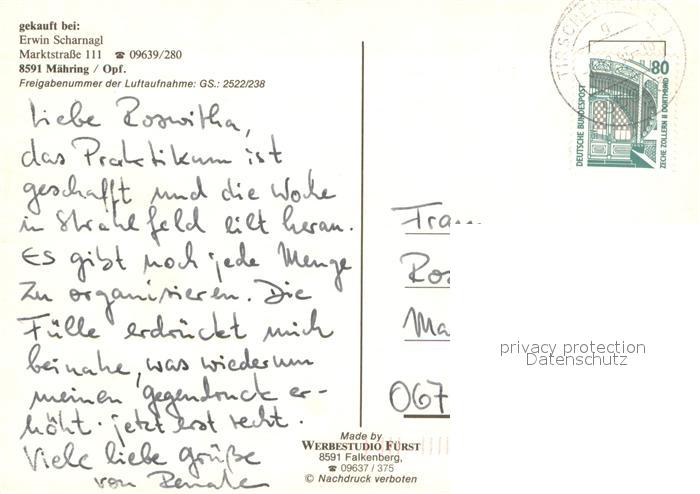 gekauft bei:
Erwin Scharnagl
Marktstraße 111 ☎ 09639/280
8591 Mähring / Opf.
Freigabenummer der Luftaufnahme: GS.: 2522/238
Liebe Roswitha,
das Praktikum ist
geschafft und die Woche
in Strahlfeld eilt heran.
Es gibt noch jede Menge
zu organisieren. Die
Fülle erdrückt mich
beinahe, was wiederum
meinen Gegendruck er-
höht. jetzt erst recht.
Viele liebe Grüße
von Renate
Made by
WERBESTUDIO FÜRST
8591 Falkenberg,
☎ 09637 / 375
© Nachdruck verboten
80
DEUTSCHE BUNDESPOST
ZECHE ZOLLERN II DORTMUND
Frau
Ros
Ma
067
privacy protection
Datenschutz